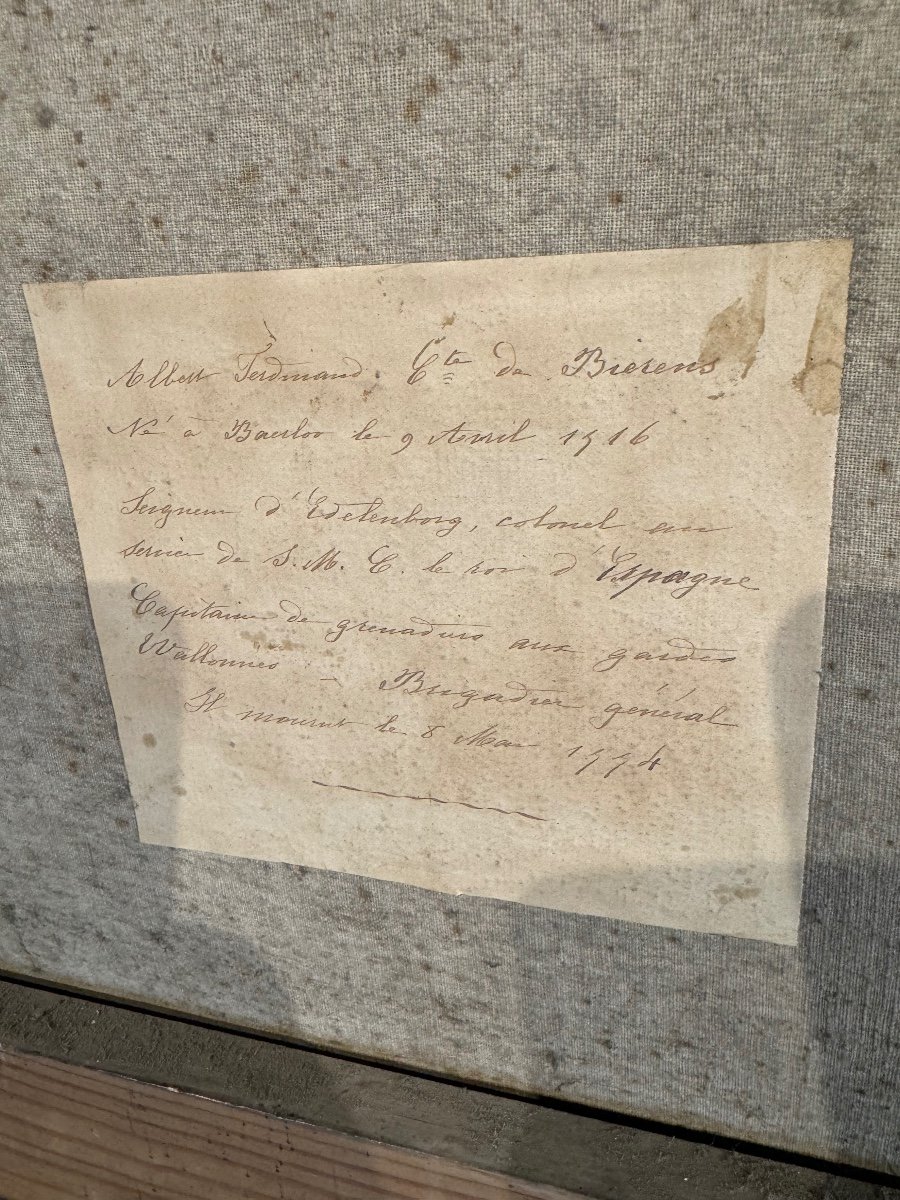 Albert Ferdinand Cte de Bierens
Né à Baerloo le 9 Avril 1716
Seigneur d'Edelenborg, colonel au
service de S. M. C. le roi d'Espagne
Capitaine de grenadiers aux gardes
Wallonnes - Brigadier général
Il mourut le 8 Mai 1774